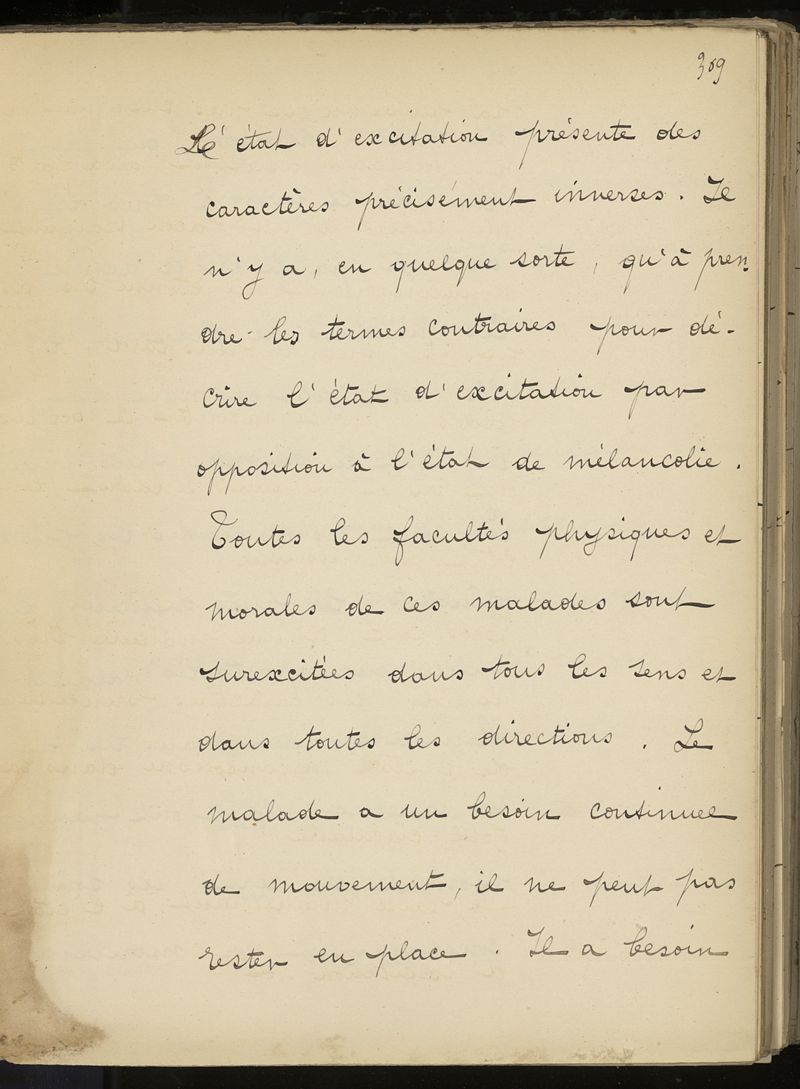 309
L'état d'excitation présente des
caractères précisément inverses. Il
n'y a, en quelque sorte, qu'à pren-
dre les termes contraires pour dé-
crire l'état d'excitation par
opposition à l'état de mélancolie.
Toutes les facultés physiques et
morales de ces malades sont
surexcitées dans tous les sens et
dans toutes les directions. Le
malade a un besoin continuel
de mouvement, il ne peut pas
rester en place. Il a besoin